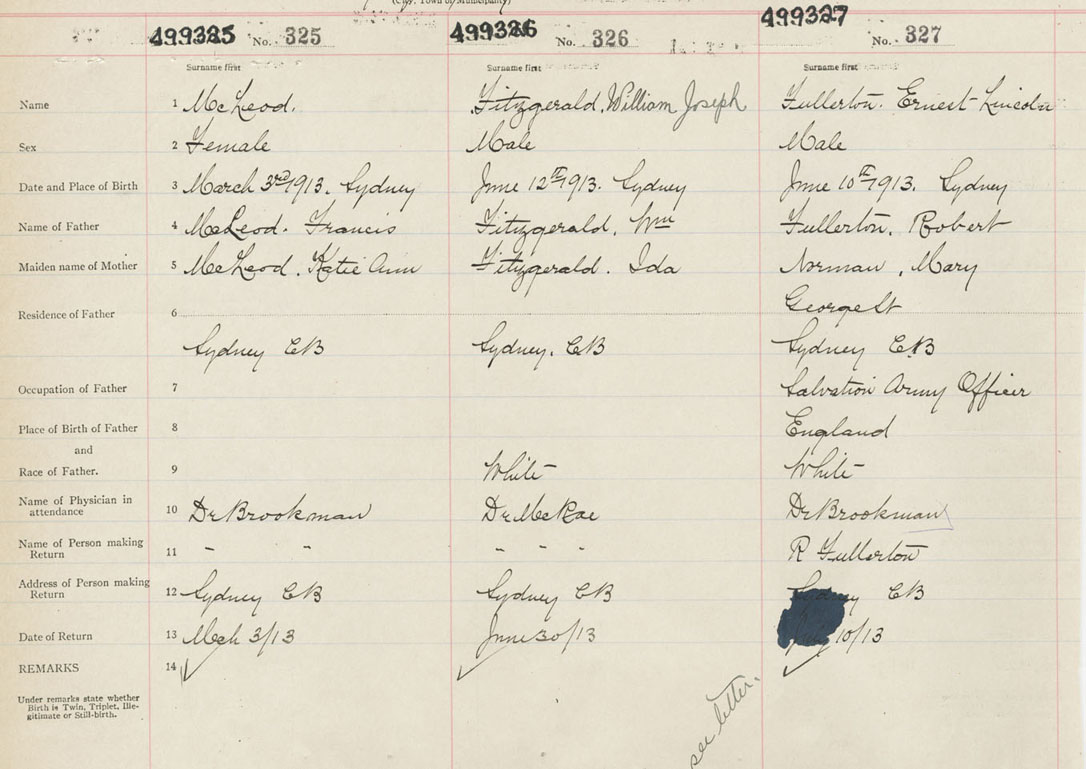 (City, Town or Municipality)
499325 No. 325 499326 No. 326 499327 No. 327
Surname first Surname first Surname first
Name 1 McLeod. Fitzgerald, William Joseph Fullerton. Ernest Lincoln
Sex 2 Female Male Male
Date and Place of Birth 3 March 3rd 1913. Sydney June 12th 1913. Sydney June 10th 1913. Sydney
Name of Father 4 McLeod. Francis Fitzgerald, Wm Fullerton, Robert
Maiden name of Mother 5 McLeod, Katie Ann Fitzgerald. Ida Norman, Mary
George St
Residence of Father 6
Sydney CB Sydney, CB Sydney CB
Occupation of Father 7 Salvation Army Officer
Place of Birth of Father 8 England
and
Race of Father. 9 White White
Name of Physician in
attendance 10 Dr Brookman Dr McRae Dr Brookman
Name of Person making
Return 11 - - - - - R Fullerton
Address of Person making
Return 12 Sydney CB Sydney CB CB
Date of Return 13 Mch 3/13 June 30/13 10/13
REMARKS 14
Under remarks state whether
Birth is Twin, Triplet, Ille-
gitimate or Still-birth.
see letter.